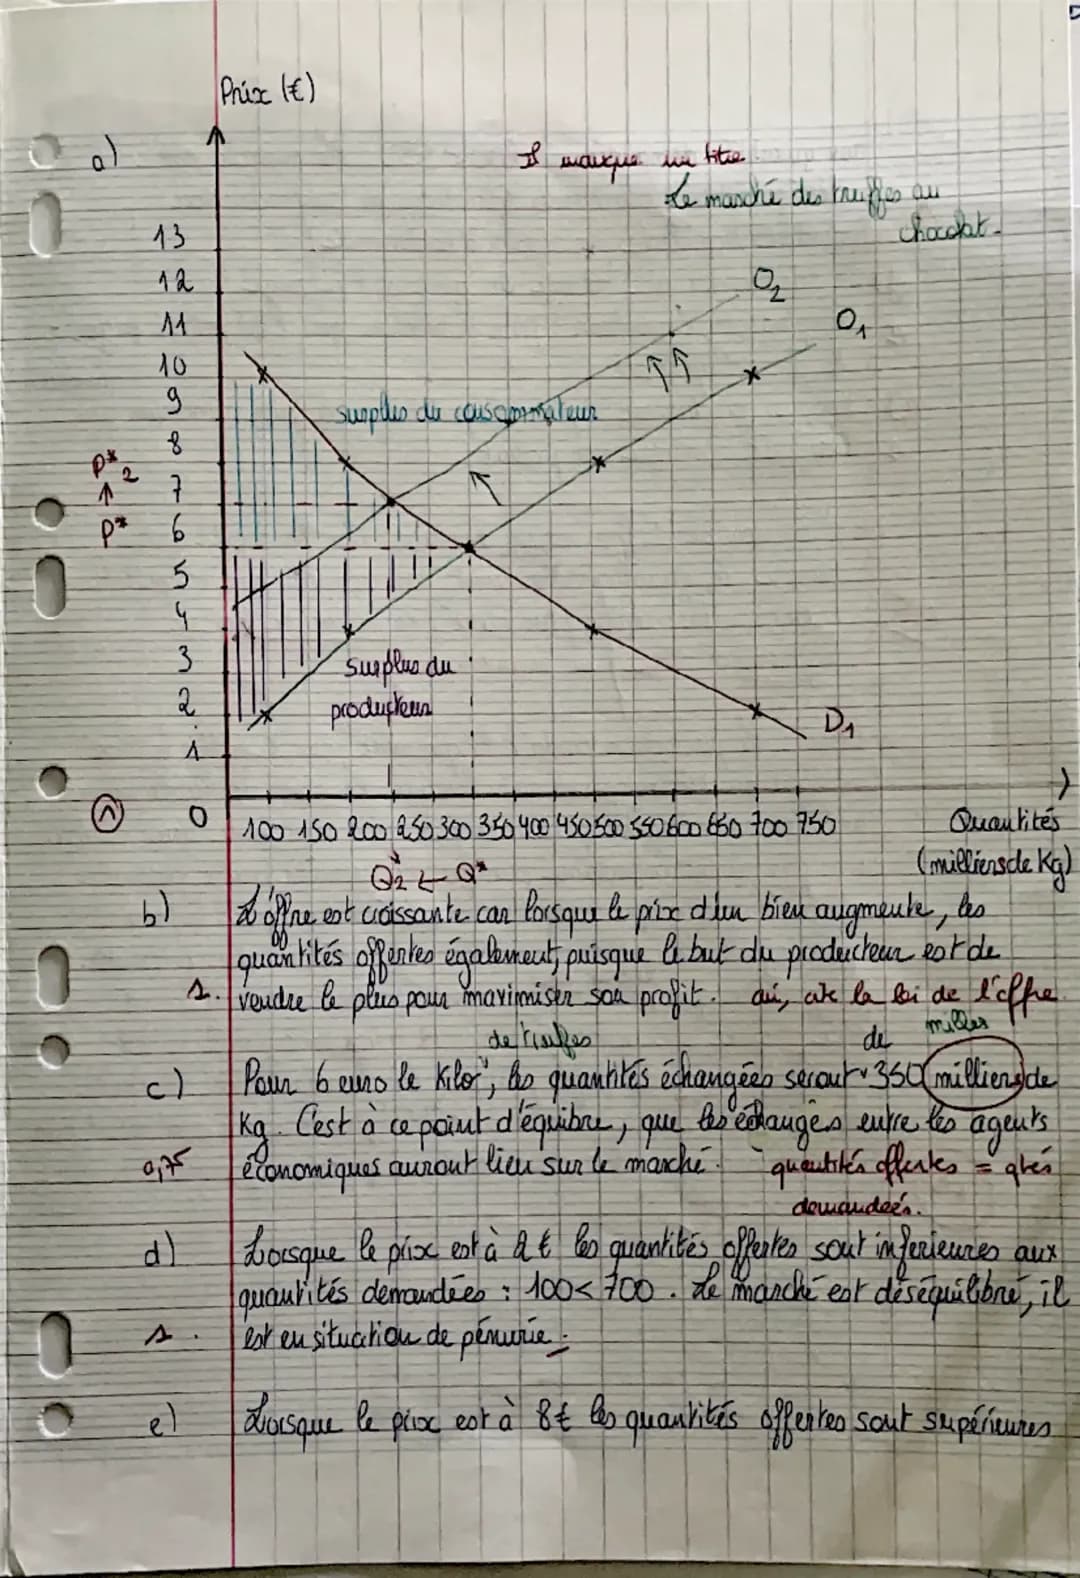 Prix (€)
a)
Il manque un titre
Le marché des truffes au
chocolat.
13
12
O2
11
O1
10
9
surplus du consommateur
8
P*2
7
↑
P*
6
5
4
3
surplus du
2
producteur
D1
1
1
0
100 150 200 250 300 350 400 450 500 550 600 650 700 750
Quantités
(milliers de Kg)
Q*2 ← Q*
b) L'offre est croissante car lorsque le prix d'un bien augmente, les
quantités offertes également, puisque le but du producteur est de
1. vendre le plus pour maximiser son profit. oui, cite la loi de l'offre
de truffes
de
milles
c) Pour 6 euro le kilo, les quantités échangées seront 350 milliers de
Kg. C'est à ce point d'équibre, que les échanges entre les agents
0,75 économiques auront lieu sur le marché. quantités offertes = qtés
demandées.
d) Lorsque le prix est à 2 € les quantités offertes sont inferieures aux
quantités demandées : 100 < 700. Le marché est déséquilibré, il
1. est en situation de pénurie.
e) Lorsque le prix est à 8 € les quantités offertes sont supérieures